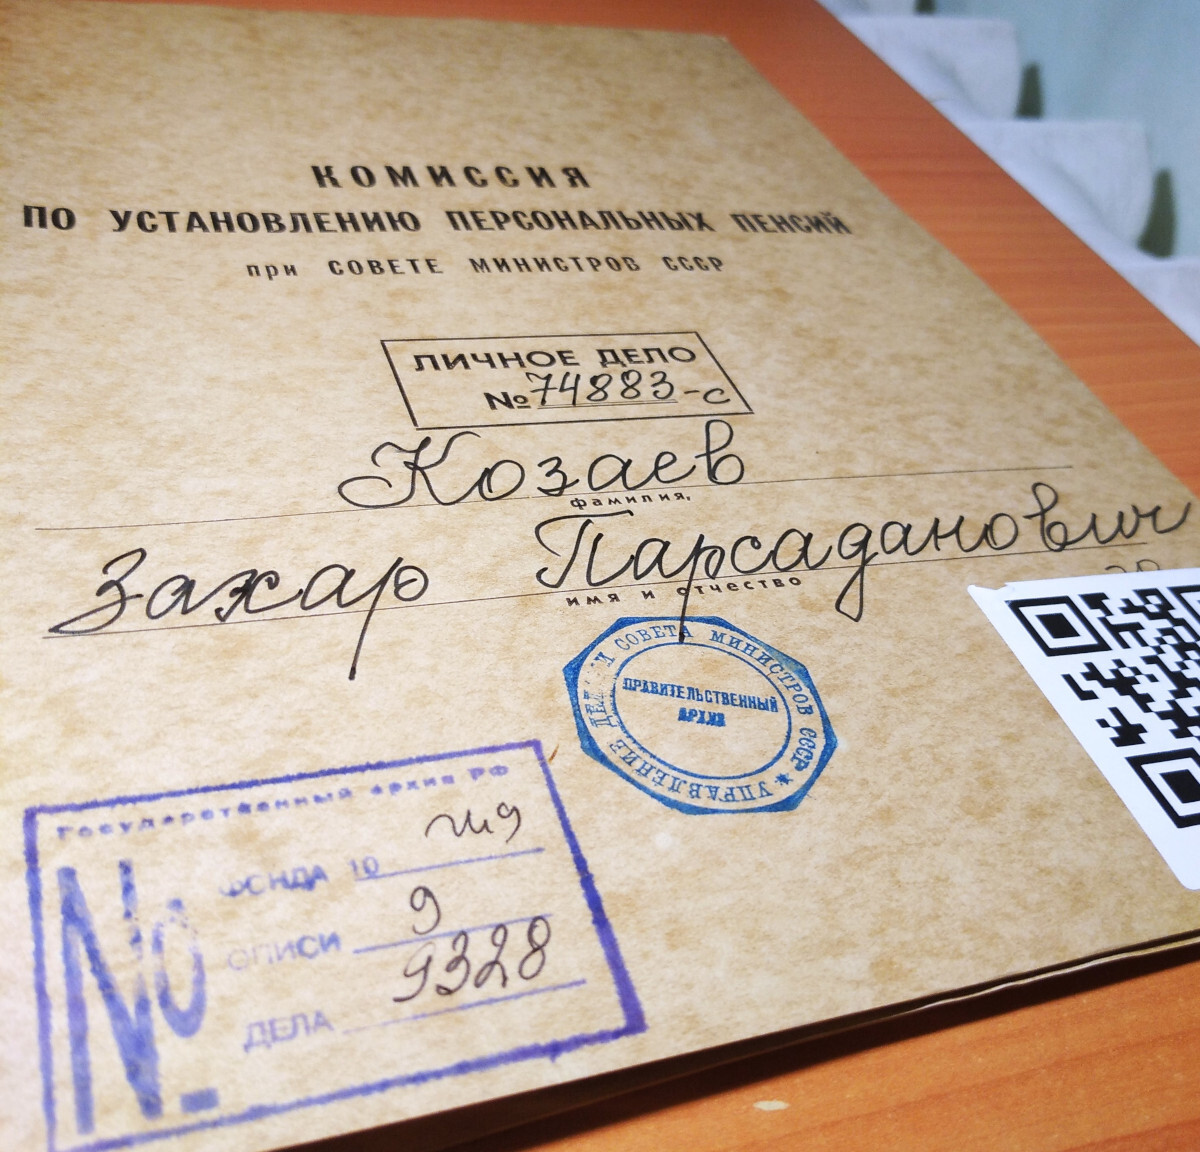 КОМИССИЯ
ПО УСТАНОВЛЕНИЮ ПЕРСОНАЛЬНЫХ ПЕНСИЙ
при СОВЕТЕ МИНИСТРОВ СССР
ЛИЧНОЕ ДЕЛО
№ 74883-с
Козаев
фамилия,
Захар Парсаданович
имя и отчество
УПРАВЛЕНИЕ ДЕЛАМИ СОВЕТА МИНИСТРОВ СССР
ПРАВИТЕЛЬСТВЕННЫЙ
АРХИВ
Государственный архив РФ
№
ФОНДА 10
ОПИСИ 9
ДЕЛА 9328